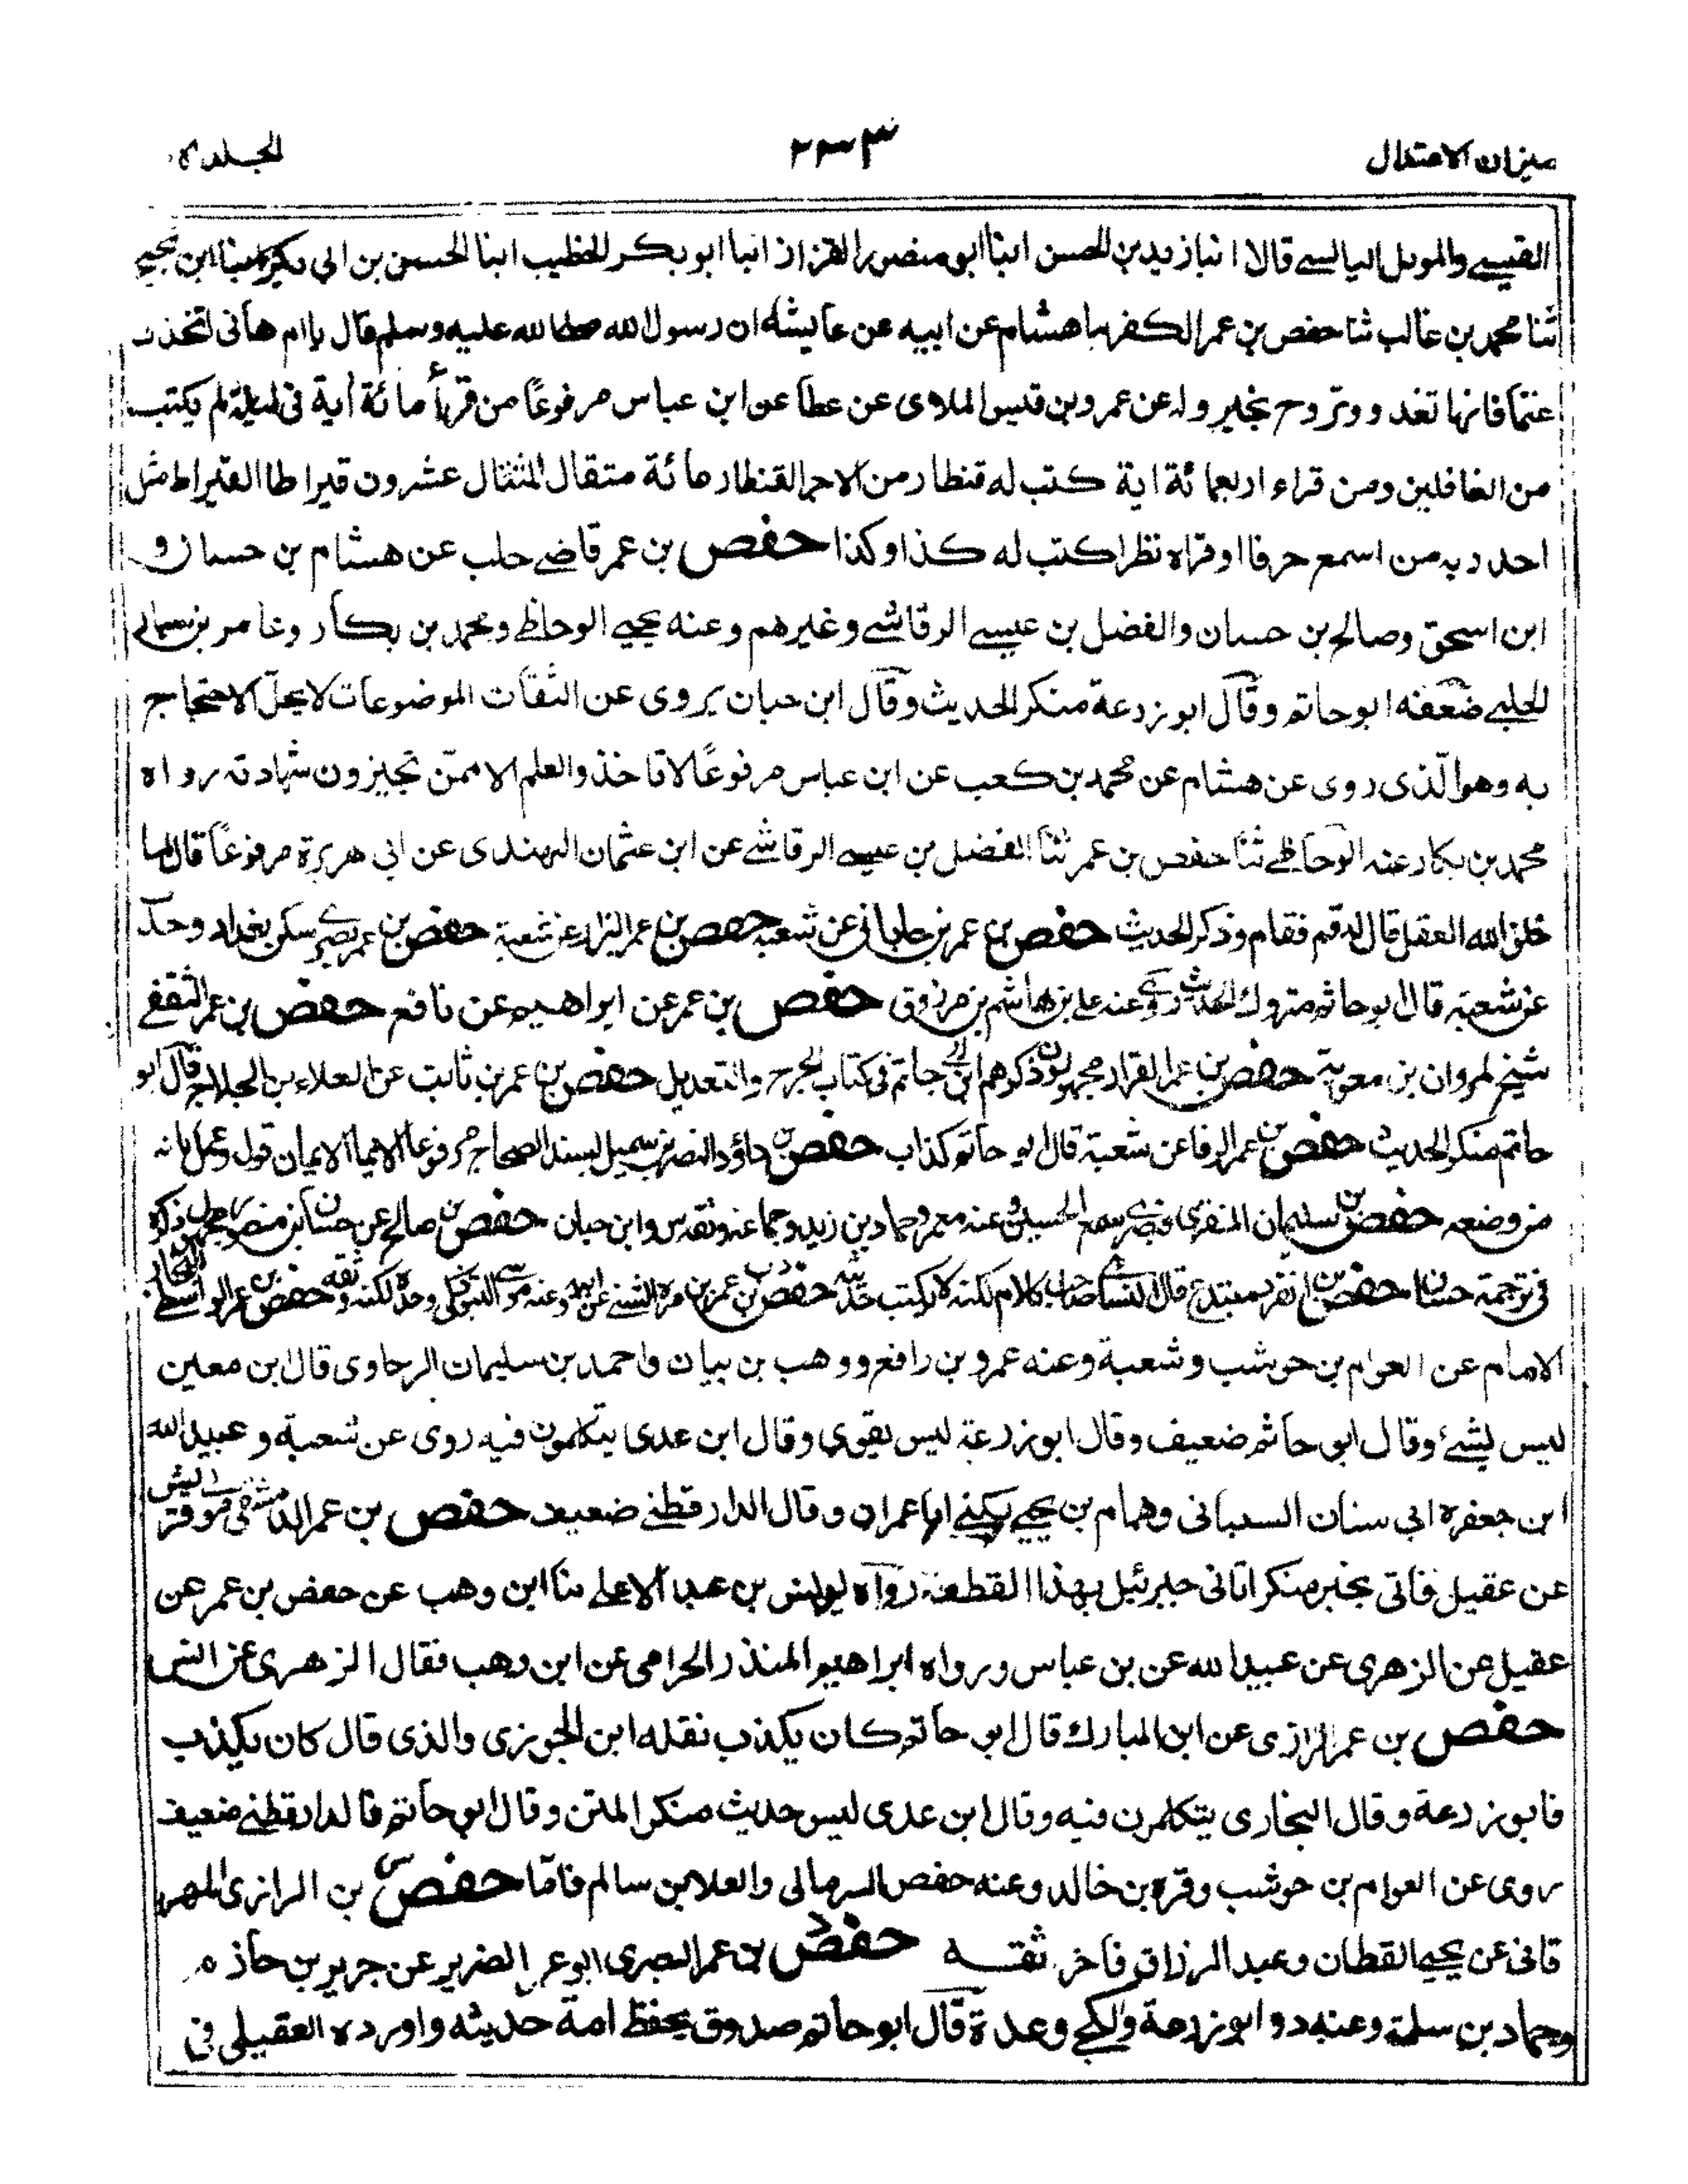 ميزان الاعتدال
٢٣٣
الجلد
القيسي والمومل البالسي قالا انبا زيد بن الحسن ابنا ابو منصور القزاز انبا ابو بكر الخطيب ابنا الحسن بن ابي بكر ابن نجيح
ثنا محمد بن غالب ثنا حفص بن عمر الكفر هشام عن ابيه عن عايشة ان رسول الله صلى الله عليه وسلم قال يا ام هانى اتخذى
غنما فانها تغدو وتروح بخير وله عن عمرو بن قيس الملاى عن عطا عن ابن عباس مرفوعًا من قرأ مائة أية فى ليلة لم يكتب
من الغافلين ومن قراء اربعمائة اية كتب له قنطار من الاجر القنطار مائة مثقال المثقال عشرون قيراطا القيراط مثل
احد وبه من اسمع حرفا اوقراه نظرا كتب له كذا وكذا حفص بن عمر قاضے حلب عن هشام بن حسان و
ابن اسحق وصالح بن حسان والفضل بن عيسے الرقاشے وغيرهم وعنه يحيے الوحاظى ومحمد بن بكار وعامر بن
الحلبے ضعفه ابو حاتم وقال ابو زرعة منكر الحديث وقال ابن حبان يروى عن الثقات الموضوعات لا يحلّ الاحتجاج
به وهو الّذى روى عن هشام عن محمد بن كعب عن ابن عباس مرفوعًا لا تاخذوا العلم الا ممن تجيزون شهادته رواه
محمد بن بكار عنه الوحاظے ثنا حفص بن عمر ثنا الفضل بن عيسے الرقاشے عن ابن عثمان النهندى عن ابى هريرة مرفوعًا قال لما
خلق الله العقل قال له قم فقام وذكر الحديث حفص بن عمر بن جابان عن شعبة حفص بن عمر البزار عن شعبة حفص بن عمر بصرے سكن بغداد وحدث
عن شعبة قال ابو حاتم متروك الحديث روى وعنه على بن هاشم بن مرزوق حفص بن عمر عن ابراهيم عن نافع حفص بن عمر الثقفے
شيخ لمروان بن معوية حفص بن عمر القزاز مجهولون ذكرهم ابن ابي حاتم فى كتاب الجرح والتعديل حفص بن عمر بن ثابت عن العلاء بن الجلاج قال ابو
حاتم منكر الحديث حفص بن عمر الرفا عن شعبة قال ابو حاتم كذاب حفص بن داؤد النضر بن شميل بسند الصحاح مرفوعا الايمان قول وعمل بانه
من وضعه حفص بن سليمان المنقرى بصرے سمع الحسن وعنه معمر وحماد بن زيد وجماعة وثقه س وابن حبان حفص بن صالح عن حسان بن منصور مجهول ذكره
فى ترجمة حسان حفص مبتدع قال النسائے صاحب كلام لكنه لا يكتب حديثه حفص بن عمر بن مرة الشنے عن ابيه وعنه موسے التبوذكى وحده لكنه ثقة حفص بن عمر الواسطے النجار
الامام عن العوام بن حوشب وشعبة وعنه عمرو بن رافع ووهب بن بيان واحمد بن سليمان الرحاوى قال ابن معين
ليس بشئ وقال ابو حاتم ضعيف وقال ابو زرعة ليس بقوي وقال ابن عدى يتكلمون فيه روى عن شعبة و عبيد الله
ابن جعفره ابى سنان السيبانى وهمام بن يحيے يكنے ابا عمران وقال الدار قطنے ضعيف حفص بن عمر الدمشقى
عن عقيل فاتى بخبر منكر اتانى جبرئيل بهذا القطعة رواه يونس بن عبد الاعلے ثنا ابن وهب عن حفص بن عمر عن
عقيل عن الزهرى عن عبيد الله عن بن عباس ورواه ابراهيم المنذر الحزامى عن ابن وهب فقال الزهرى عن انس
حفص بن عمر الرازى عن ابن المبارك قال ابو حاتم كان يكذب نقله ابن الجوزى والذى قال كان يكذب
فابو زرعة وقال البخارى يتكلمون فيه وقال ابن عدى ليس حديث منكر المتن وقال ابو حاتم قا لدارقطنے ضعيف
روى عن العوام بن حوشب وقرة بن خالد وعنه حفص السرمالى والعلا بن سالم فامّا حفص بن الرازى المهر
قانى عن يحيے القطان وعبد الرزاق فاخر ثقــه حفص بن عمر البصرى ابو عمر الضرير عن جرير بن حازم
وحماد بن سلمة وعنه د و ابو زرعة والكجے وعدة قال ابو حاتم صدوق يحفظ امة حديثه واورده العقيلى فى